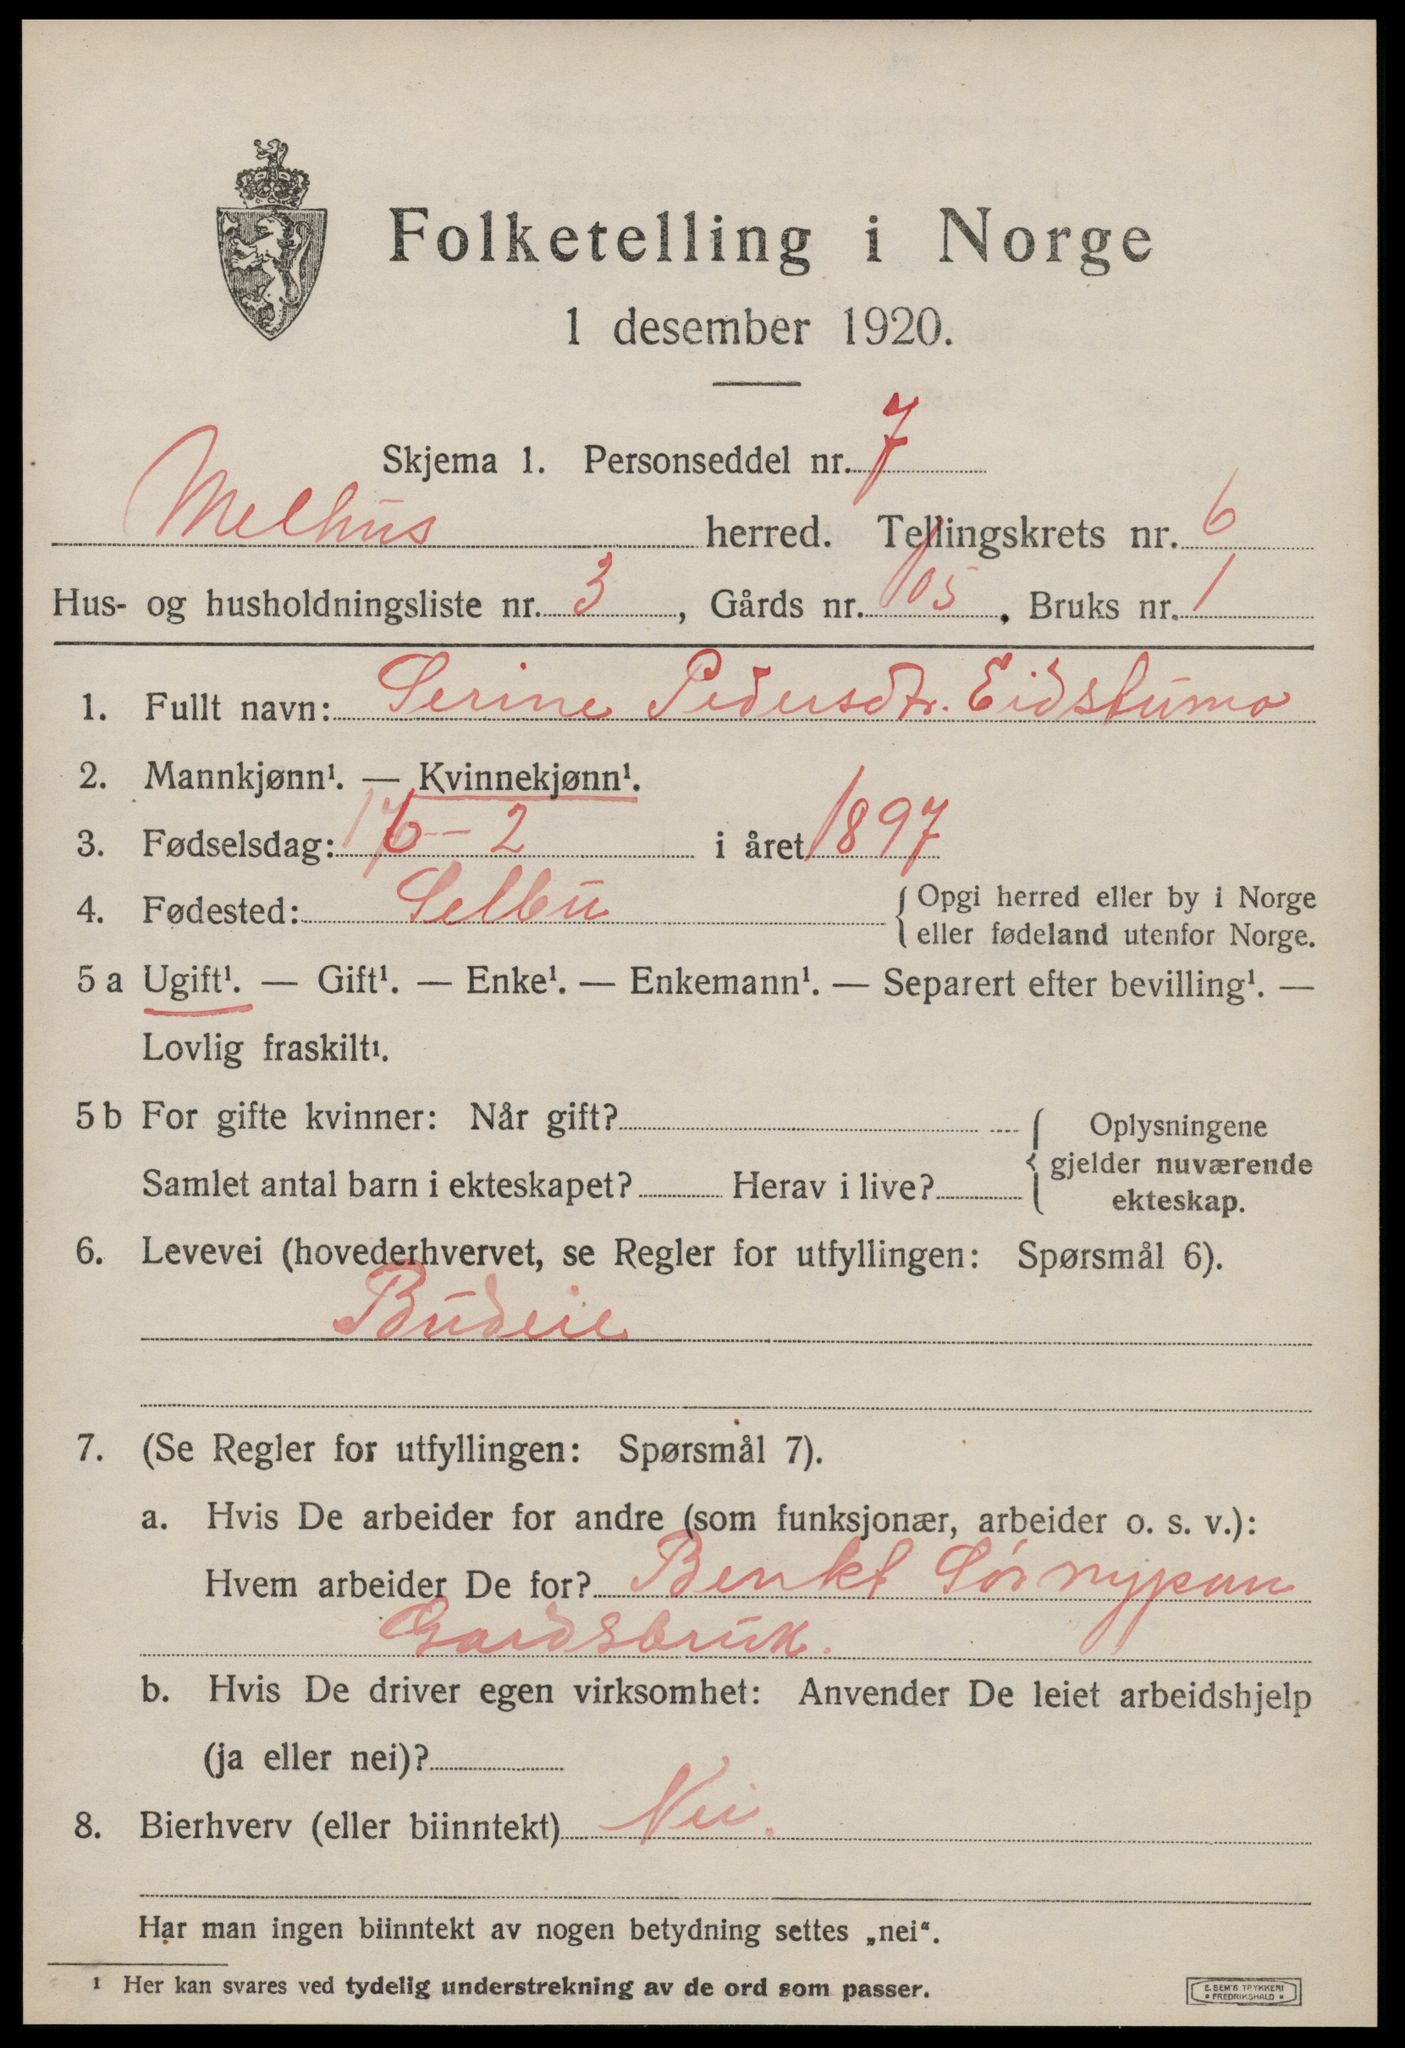 Folketelling i Norge
1 desember 1920.
Skjema 1. Personseddel nr. 7
Melhus herred. Tellingskrets nr. 6
Hus- og husholdningsliste nr. 3, Gårds nr. 105, Bruks nr. 1
1. Fullt navn: Serine Pedersdtr. Eidstumo
2. Mannkjønn¹. — Kvinnekjønn¹.
3. Fødselsdag: 16 - 2 i året 1897
4. Fødested: Selbu { Opgi herred eller by i Norge
eller fødeland utenfor Norge.
5 a Ugift¹. — Gift¹. — Enke¹. — Enkemann¹. — Separert efter bevilling¹. —
Lovlig fraskilt¹.
5 b For gifte kvinner: Når gift? { Oplysningene
gjelder nuværende
ekteskap.
Samlet antal barn i ekteskapet? Herav i live?
6. Levevei (hovederhvervet, se Regler for utfyllingen: Spørsmål 6).
Budeie
7. (Se Regler for utfyllingen: Spørsmål 7).
a. Hvis De arbeider for andre (som funksjonær, arbeider o. s. v.):
Hvem arbeider De for? Benkt Sørnypan
Gardsbruk.
b. Hvis De driver egen virksomhet: Anvender De leiet arbeidshjelp
(ja eller nei)?
8. Bierhverv (eller biinntekt) Nei.
Har man ingen biinntekt av nogen betydning settes „nei“.
¹ Her kan svares ved tydelig understrekning av de ord som passer.
E. SEM'S TRYKKERI
FREDRIKSHALD